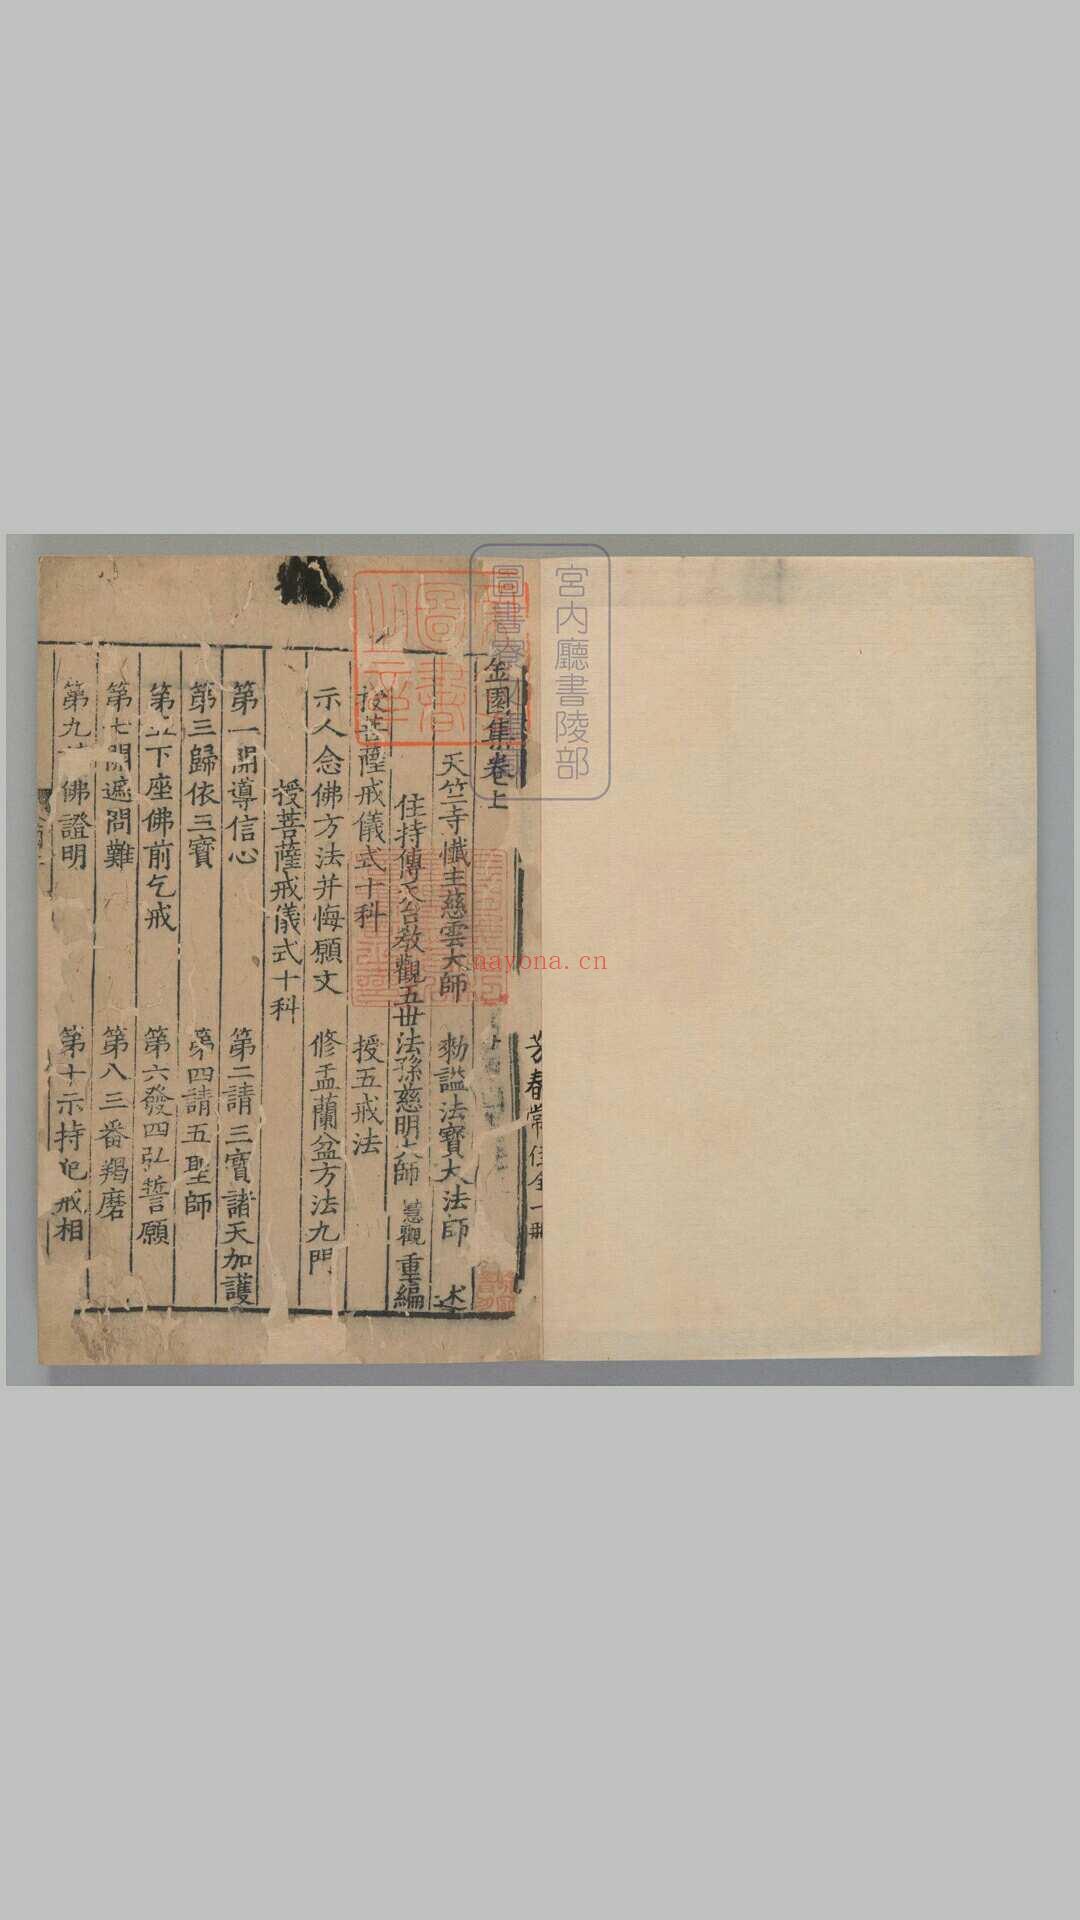 宮内廳書陵部
圖書寮
nayona.cn
芳春常住全一冊
金園集卷上
天竺寺懺主慈雲大師 勑謚法寶大法師 述
住持傳天台教觀五世法孫慈明大師 慧觀 重編
授菩薩戒儀式十科 授五戒法
示人念佛方法并悔願文 修盂蘭盆方法九門
授菩薩戒儀式十科
第一開導信心 第二請三寶諸天加護
第三歸依三寶 第四請五聖師
第五下座佛前乞戒 第六發四弘誓願
第七開遮問難 第八三番羯磨
第九 佛證明 第十示持犯戒相